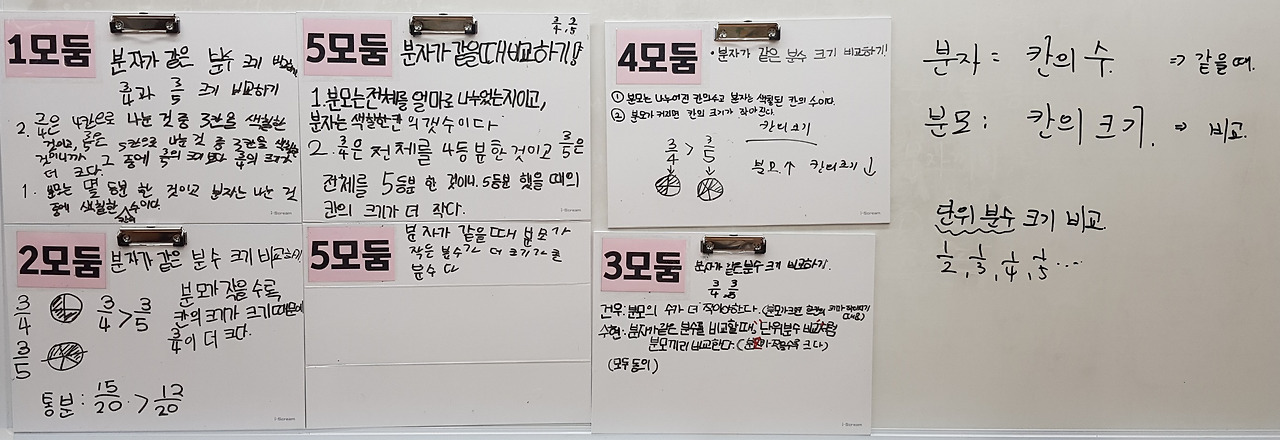 1모둠
분자가 같은 분수 크기
3/4과 3/5 크기 비교하기
2. 3/4은 4칸으로 나눈 것 중 3칸을 색칠한
것이고, 3/5은 5칸으로 나눈 것 중 3칸을 색칠한
것이니까 그 중에 3/4의 크기보다
더 크다.
1. 분모는 몇 등분 한 것이고 분자는 나눈 것
중에 색칠한 수이다.
i-Scream
5모둠
3/4, 3/5
분자가 같을때 비교하기!
1. 분모는 전체를 얼마로 나누었는지이고,
분자는 색칠한 칸의 갯수이다
2. 3/4은 전체를 4등분한 것이고 3/5은
전체를 5등분 한 것이니, 5등분 했을 때의
칸의 크기가 더 작다.
i-Scream
4모둠
• 분자가 같은 분수 크기 비교하기!
① 분모는 나누어진 칸의수고 분자는 색칠된 칸의 수이다.
② 분모가 커지면 칸의 크기가 작아진다.
칸의크기
3/4 > 3/5
분모↑ 칸의크기↓
i-Scream
2모둠
분자가 같은 분수 크기 비교하기
3/4
3/4 > 3/5
3/5
분모가 작을수록
칸의 크기가 크기 때문에
3/4이 더 크다.
통분: 15/20 > 12/20
i-Scream
5모둠
분자가 같을 때 분모가
작은 분수가 더 크기가 큰
분수다
3모둠
분자가 같은 분수 크기 비교하기.
3/4 3/5
건우: 분모의 수가 더 작아야한다.
수현: 분자가 같은 분수를 비교할 때, 단위분수 비교처럼
분모끼리 비교한다. (분모가 작을수록 크다)
(모두 동의)
i-Scream
분자 = 칸의 수. ⇒ 같을 때.
분모: 칸의 크기. ⇒ 비교.
단위 분수 크기 비교
1/2, 1/3, 1/4, 1/5 ....